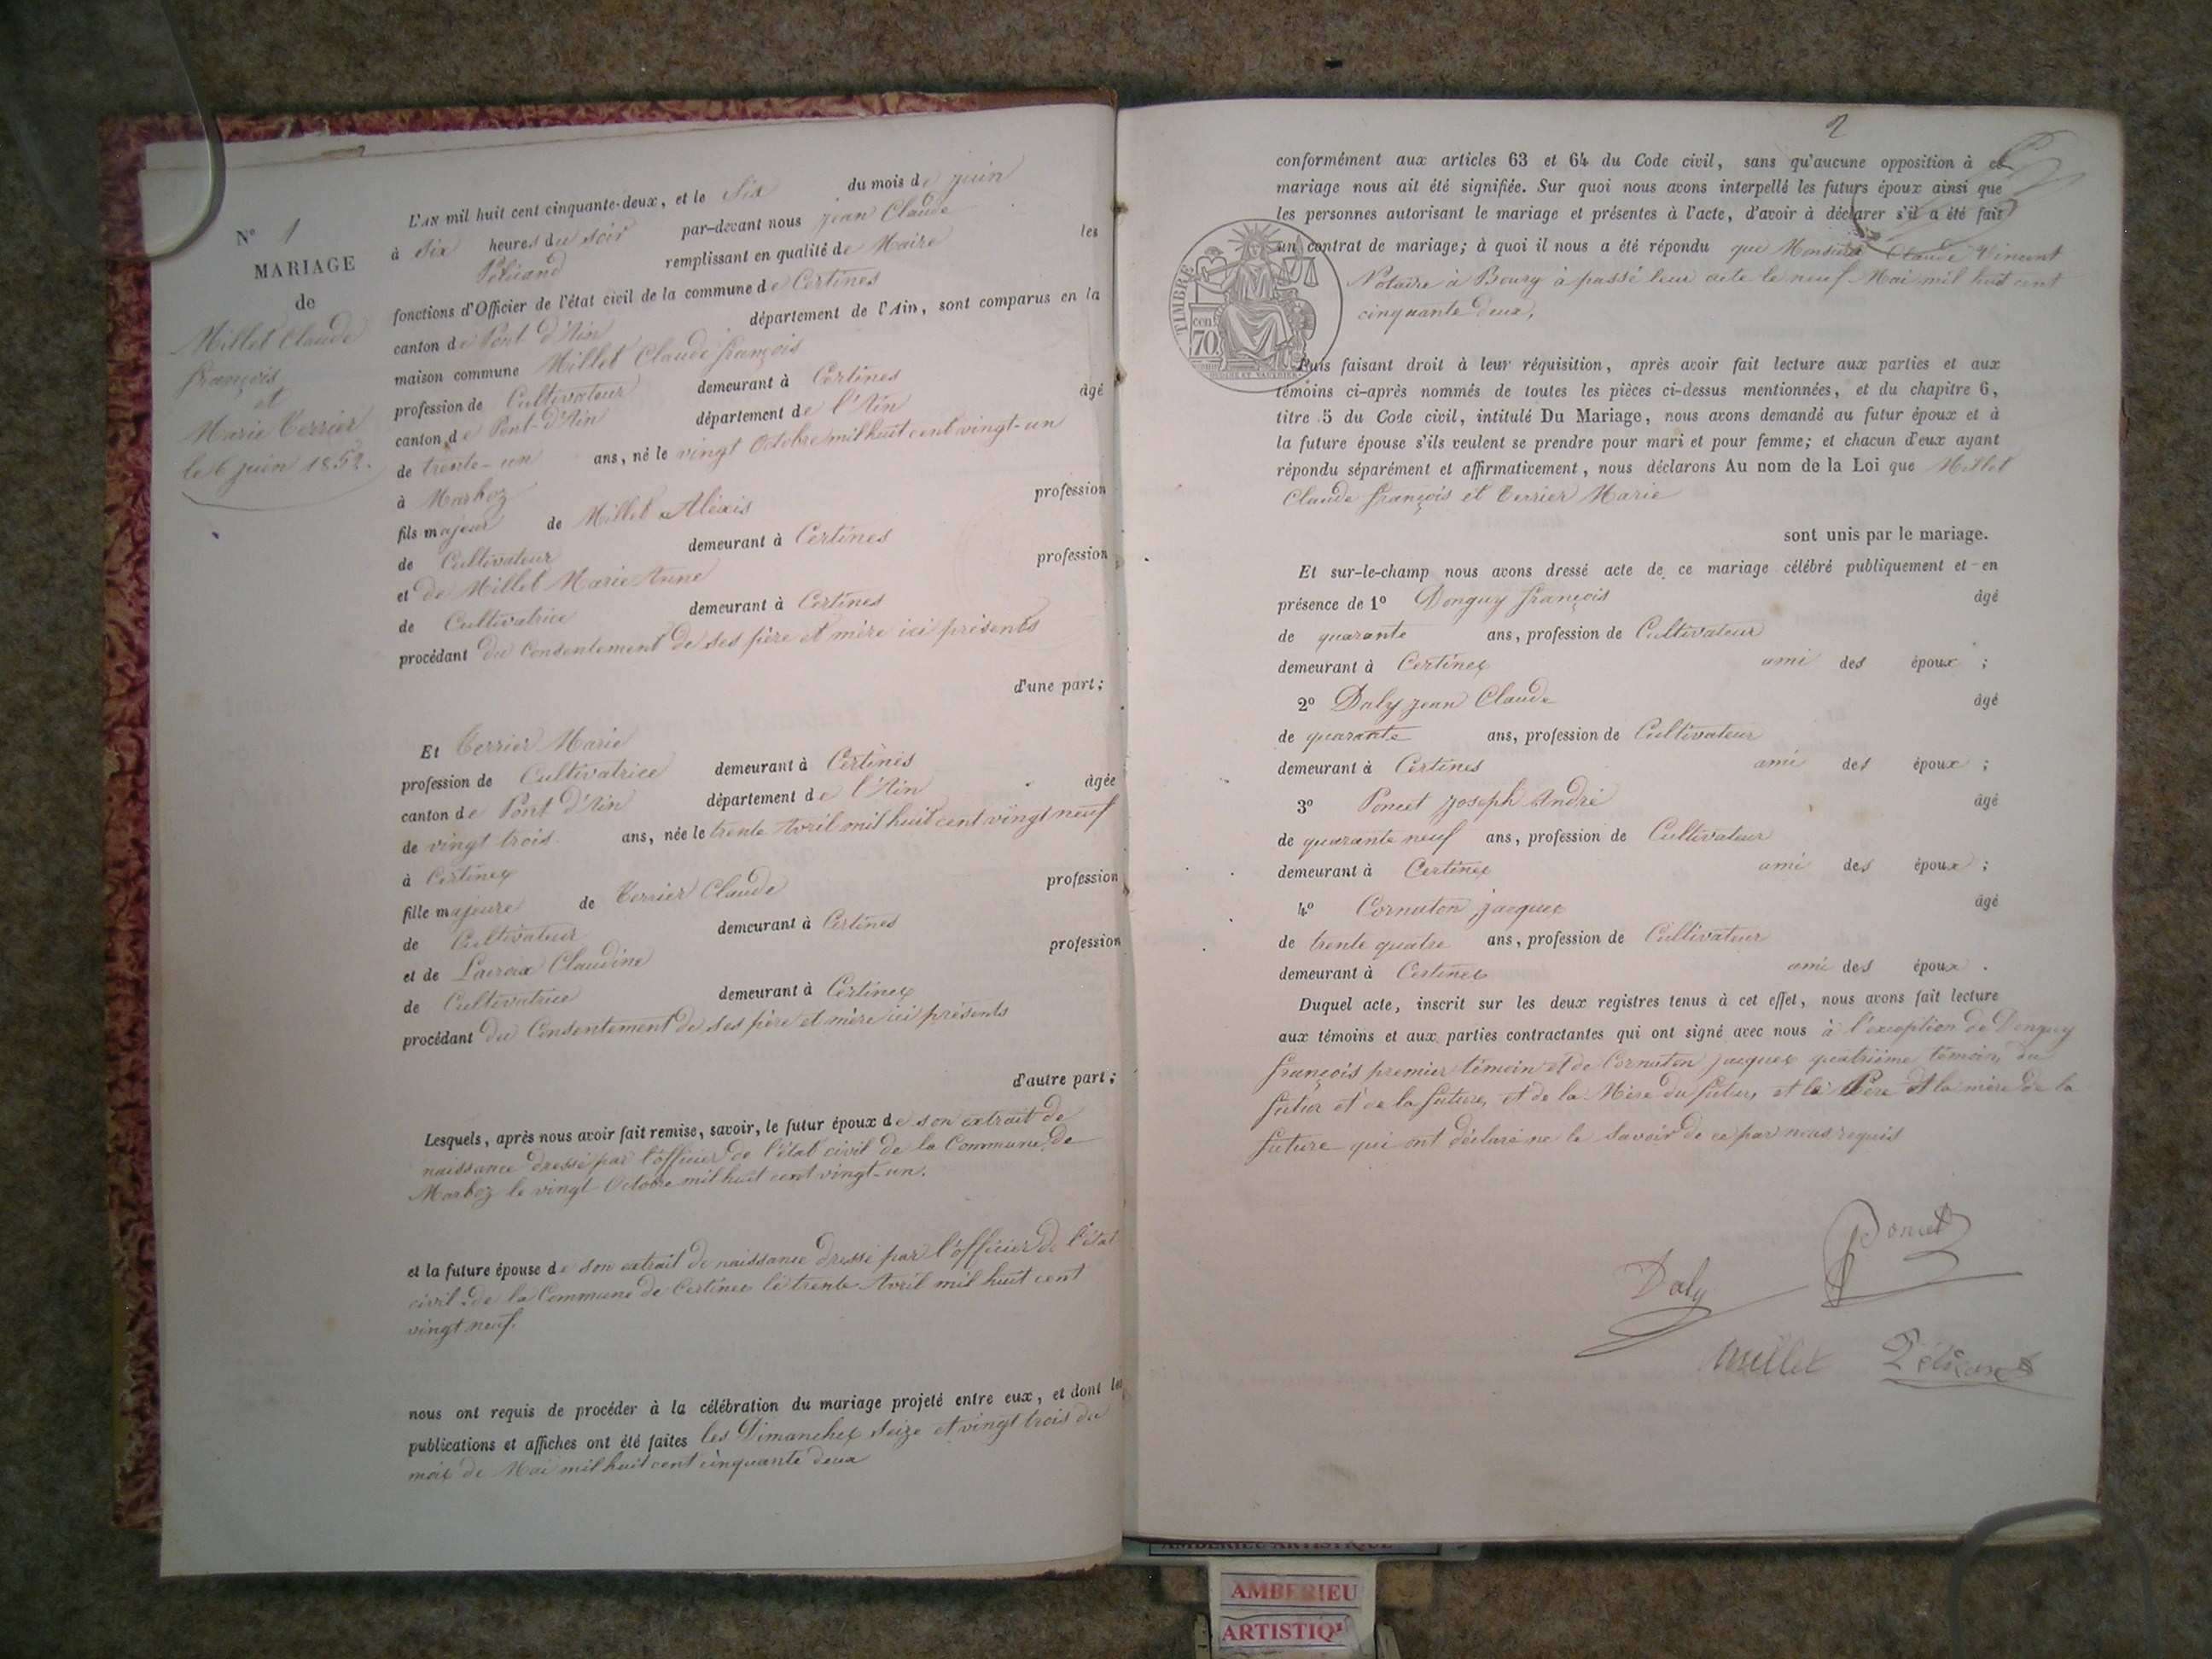 N° 1
MARIAGE
de
Millet Claude
françois
et
Marie Terrier
le 6 juin 1852.
L'AN mil huit cent cinquante-deux, et le Six du mois de juin
à Six heures du soir par-devant nous Jean Claude
Pélicand remplissant en qualité de Maire les
fonctions d'Officier de l'état civil de la commune de Certines
canton de Pont d'Ain département de l'Ain, sont comparus en la
maison commune Millet Claude françois
profession de Cultivateur demeurant à Certines
canton de Pont-d'Ain département de l'Ain âgé
de trente-un ans, né le vingt Octobre mil huit cent vingt-un
à Marboz
fils majeur de Millet Aléxis profession
de Cultivateur demeurant à Certines
et de Millet Marie Anne profession
de Cultivatrice demeurant à Certines
procédant du Consentement de ses père et mère ici présents
d'une part;
Et Terrier Marie
profession de Cultivatrice demeurant à Certines
canton de Pont d'Ain département de l'Ain âgée
de vingt trois ans, née le trente Avril mil huit cent vingt neuf
à Certines
fille majeure de Terrier Claude profession
de Cultivateur demeurant à Certines
et de Lacroix Claudine profession
de Cultivatrice demeurant à Certines
procédant du Consentement de ses père et mère ici présents
d'autre part;
Lesquels, après nous avoir fait remise, savoir, le futur époux de son extrait de
naissance dressé par l'officier de l'état civil de la Commune de
Marboz le vingt Octobre mil huit cent vingt-un.
et la future épouse de son extrait de naissance dressé par l'officier de l'état
civil de la Commune de Certines le trente Avril mil huit cent
vingt neuf.
nous ont requis de procéder à la célébration du mariage projeté entre eux, et dont les
publications et affiches ont été faites les Dimanches seize et vingt trois du
mois de Mai mil huit cent cinquante deux
2
conformément aux articles 63 et 64 du Code civil, sans qu'aucune opposition à ce
mariage nous ait été signifiée. Sur quoi nous avons interpellé les futurs époux ainsi que
les personnes autorisant le mariage et présentes à l'acte, d'avoir à déclarer s'il a été fait
un contrat de mariage; à quoi il nous a été répondu que Monsieur Claude Vincent
Notaire à Bourg à passé leur acte le neuf Mai mil huit cent
cinquante deux,
TIMBRE
cen
70
Puis faisant droit à leur réquisition, après avoir fait lecture aux parties et aux
témoins ci-après nommés de toutes les pièces ci-dessus mentionnées, et du chapitre 6,
titre 5 du Code civil, intitulé Du Mariage, nous avons demandé au futur époux et à
la future épouse s'ils veulent se prendre pour mari et pour femme; et chacun d'eux ayant
répondu séparément et affirmativement, nous déclarons Au nom de la Loi que Millet
Claude françois et Terrier Marie
sont unis par le mariage.
Et sur-le-champ nous avons dressé acte de ce mariage célébré publiquement et en
présence de 1° Donguy françois âgé
de quarante ans, profession de Cultivateur
demeurant à Certines ami des époux ;
2° Daly Jean Claude âgé
de quarante ans, profession de Cultivateur
demeurant à Certines ami des époux ;
3° Poncet Joseph André âgé
de quarante neuf ans, profession de Cultivateur
demeurant à Certines ami des époux ;
4° Cornuton Jacques âgé
de trente quatre ans, profession de Cultivateur
demeurant à Certines ami des époux .
Duquel acte, inscrit sur les deux registres tenus à cet effet, nous avons fait lecture
aux témoins et aux parties contractantes qui ont signé avec nous à l'exception de Donguy
françois premier témoin et de Cornuton Jacques quatrième témoin, du
futur et de la future, et de la Mère du futur, et le Père et la mère de la
future qui ont déclaré ne le savoir de ce par nous requis
Poncet
Daly
Millet Pélicand
AMBERIEU ARTISTIQUE
AMBERIEU
ARTISTIQ